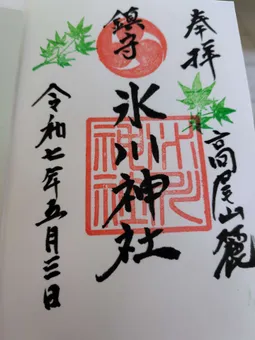 奉拝
高尾山麓
鎮守
氷川神社
氷川
神社
令和七年五月三日